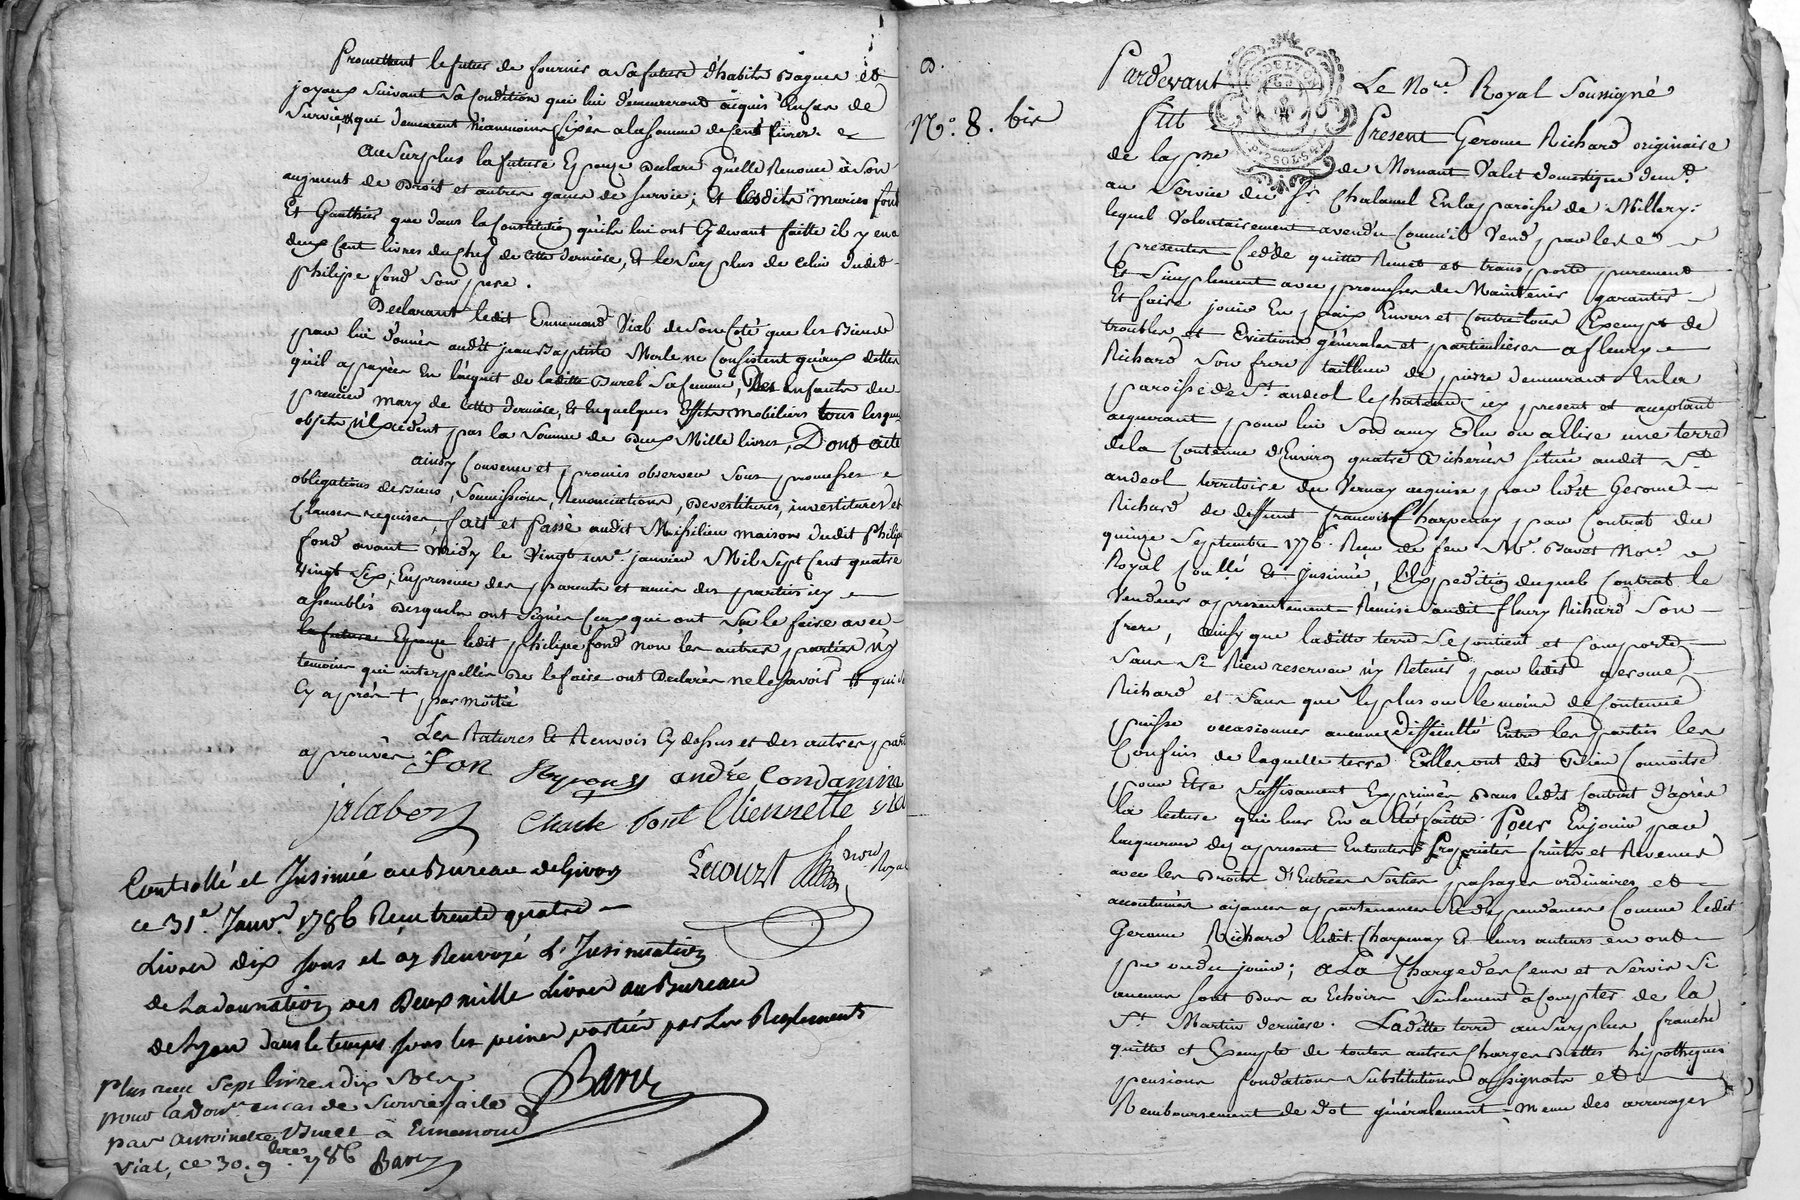 Promettant le futur de fournir a sa future d'habits Bagues et
joyaux suivant sa Condition qui lui demeureront acquis En cas de
Survie, & qui demeurent néanmoins fixés a la somme de Cent livres. &
Au Surplus la future Epouze Declare qu'elle Renonce à son
augment de Droit et autres gains de survie; Et lesdits mariés fond
Et Gauthier que dans la Constitution qu'ils lui ont Cy devant faitte il y en a
deux Cent livres du Chef de cette derniere, Et le surplus de celui dudit
philipe fond son pere.
Declarant ledit Ennemond Vial de son Coté que les Biens
par lui donnés audit jean Baptiste Merle ne Consistent qu'aux dettes
qu'il a payées En l'acquit de laditte Burel sa femme, Des Enfants du
premier mary de cette derniere, Et En quelques Effets mobiliers tous lesquels
objets n'Excedent pas la somme de Deux Mille livres, Dont acte
ainsy Convenu et promis observer sous promesses
obligations de biens, Soumissions, Renonciations, Devestitures, investitures et
Clauses requises, fait et Passé audit Missilieu maison dudit Philipe
fond avant midy le Vingt un.e janvier Mil Sept Cent quatre
vingt Six; En presence des parents et amis des parties icy
assemblés Desquels ont signés Ceux qui ont Sçu le faire avec
la future Epouze ledit philipe fond non les autres parties ny
temoins qui interpellés De le faire ont Declarés ne le savoir # qui
Cy après + par moitié
Les Ratures Et Renvois Cy dessus et des autres parts
aprouvés fon Peyronny andré Condamine
jalabert Charle font Etiennette
Lecourt nore Royal
Controllé et Insinué au Bureau de Givors
ce 31e. Janvr. 1786 Reçu trente quatre
Livres dix sous et ay Renvoyé L'Insinuation
de La donnation des Deux mille Livres au Bureau
de Lyon dans le temps sous les peines portées par Les Reglements
Plus reçu Sept livres dix Sols Barou
pour la don.on en cas de Survie faite
par Antoinette Burel à Ennemond
Vial, ce 30. 9bre. 1786 Barou
N°. 8. bis
Pardevant Le No.re Royal Soussigné
G. DE LYON
Fut Present Gerome Richard originaire
de la p.sse de Mornant Valet domestique dem.t
au Service du S.r Chalamel En la paroisse de Millery.
lequel Volontairement a vendu Comm'il Vend par les
presentes Cedde quitte Remet et transporte purement
Et Simplement avec promesses de Maintenir garantir
Et faire jouir En paix Envers et Contre tous Exempt de
troubles et Evictions générales et particulieres a fleury
Richard Son frere tailleur de pierre demeurant En la
paroisse de S.t andeol le chateau icy present et acceptant
acquerant pour lui son amy Elu ou a Elire une terre
de la Contenue d'Environ quatre Bicherées située audit S.t
andeol territoire du Vernay acquise par ledit Gerome
Richard de deffunt francois Charpenay par Contrat du
quinze Septembre 1776. Reçu de feu M.e Bavot No.re
Royal Con.llé Et Insinué, l'Expedition duquel Contrat le
Vendeur a presentement Remise audit fleury Richard Son
frere, ainsy que laditte terre Se Contient et Comporte
Sans S'y Rien reserver n'y Retenir par ledit gerome
Richard et Sans que le plus ou le moins de Contenue
puisse occasionner aucune difficulté Entre les parties les
Confins de laquelle terre Elles ont dit Bien Connoitre
pour Etre suffisament Exprimés Dans ledit Contrat d'après
la lecture qui leur En a été faitte. Pour En jouir par
l'acquereur dès apresent En toutes Proprietés fruits et Revenus
avec les Droits d'Entrées Sorties passages ordinaires et
accoutumés aisances apartenances Et dépendances Comme ledit
Gerome Richard ledit Charpenay Et leurs auteurs en ont
pu ou du jouir; a La Charge des Cens et Servis Si
aucuns Sont Dus a Echoir Seulement a Compter de la
S.t Martin derniere. Laditte terre au surplus, franche
quitte et Exempte de toutes autres Charges Dettes hipotheques
pensions fondations Substitutions assignats et
Remboursement de dot généralement meme des arrerages